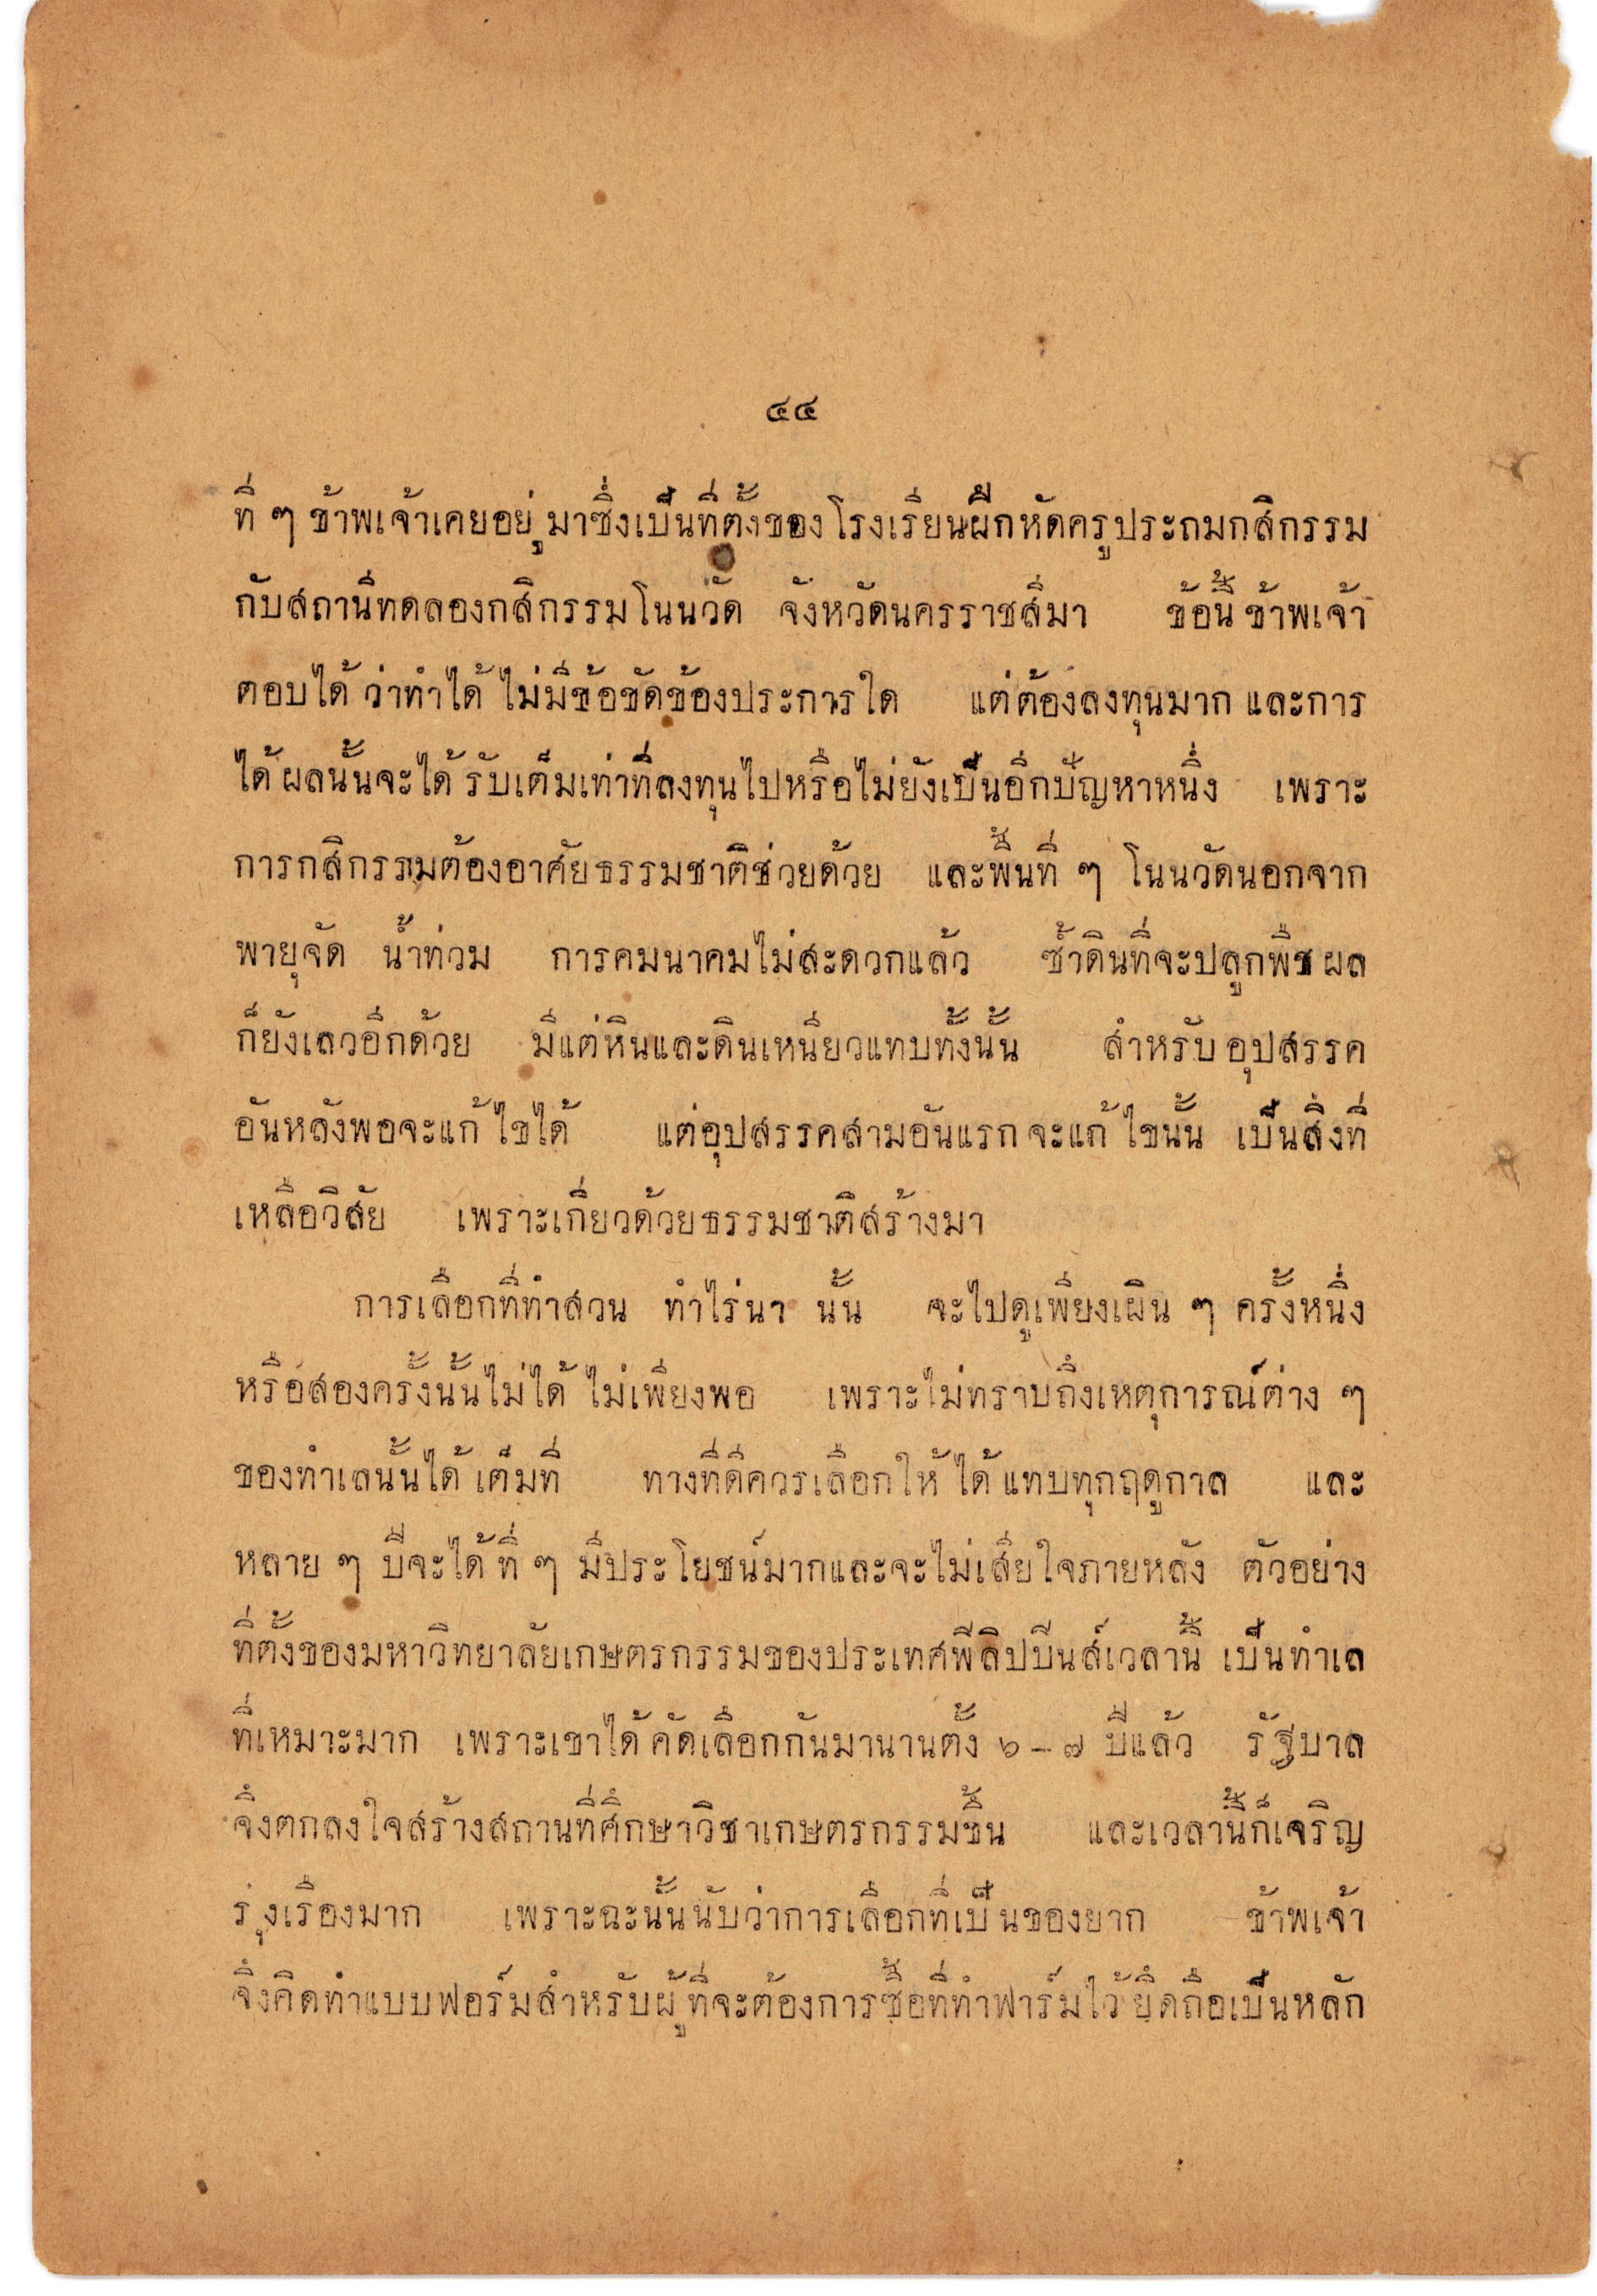 ๔๔
ที่ ๆ ข้าพเจ้าเคยอยู่มาซึ่งเป็นที่ตั้งของโรงเรียนฝึกหัดครูประถมกสิกรรม
กับสถานีทดลองกสิกรรมโนนวัด จังหวัดนครราชสีมา ข้อนี้ ข้าพเจ้า
ตอบได้ ว่าทำได้ ไม่มีข้อขัดข้องประการใด แต่ต้องลงทุนมาก และการ
ได้ผลนั้นจะได้ รับเต็มเท่าที่ลงทุนไปหรือไม่ยังเป็นอีกปัญหาหนึ่ง เพราะ
การกสิกรรมต้องอาศัยธรรมชาติช่วยด้วย และพื้นที่ ๆ โนนวัดนอกจาก
พายุจัด น้ำท่วม การคมนาคมไม่สะดวกแล้ว ซ้ำดินที่จะปลูกพืชผล
ก็ยังเลวอีกด้วย มีแต่หินและดินเหนียวแทบทั้งนั้น สำหรับอุปสรรค
อันหลังพอจะแก้ไขได้ แต่อุปสรรคสามอันแรกจะแก้ไขนั้น เป็นสิ่งที่
เหลือวิสัย เพราะเกี่ยวด้วยธรรมชาติสร้างมา
การเลือกที่ทำสวน ทำไร่นา นั้น จะไปดูเพียงเผิน ๆ ครั้งหนึ่ง
หรือสองครั้งนั้นไม่ได้ ไม่เพียงพอ เพราะไม่ทราบถึงเหตุการณ์ต่าง ๆ
ของทำเลนั้นได้ เต็มที่ ทางที่ดีควรเลือกให้ ได้ แทบทุกฤดูกาล และ
หลาย ๆ ปีจะได้ ที่ ๆ มีประโยชน์มากและจะไม่เสียใจภายหลัง ตัวอย่าง
ที่ตั้งของมหาวิทยาลัยเกษตรกรรมของประเทศฟิลิปปินส์เวลานี้ เป็นทำเล
ที่เหมาะมาก เพราะเขาได้ คัดเลือกกันมานานตั้ง ๖ – ๗ ปีแล้ว รัฐบาล
จึงตกลงใจสร้างสถานที่ศึกษาวิชาเกษตรกรรมขึ้น และเวลานี้ก็เจริญ
รุ่งเรืองมาก เพราะฉะนั้นนับว่าการเลือกที่เป็นของยาก ข้าพเจ้า
จึงคิดทำแบบฟอร์มสำหรับผู้ที่จะต้องการซื้อที่ทำฟาร์มไว้ ยึดถือเป็นหลัก